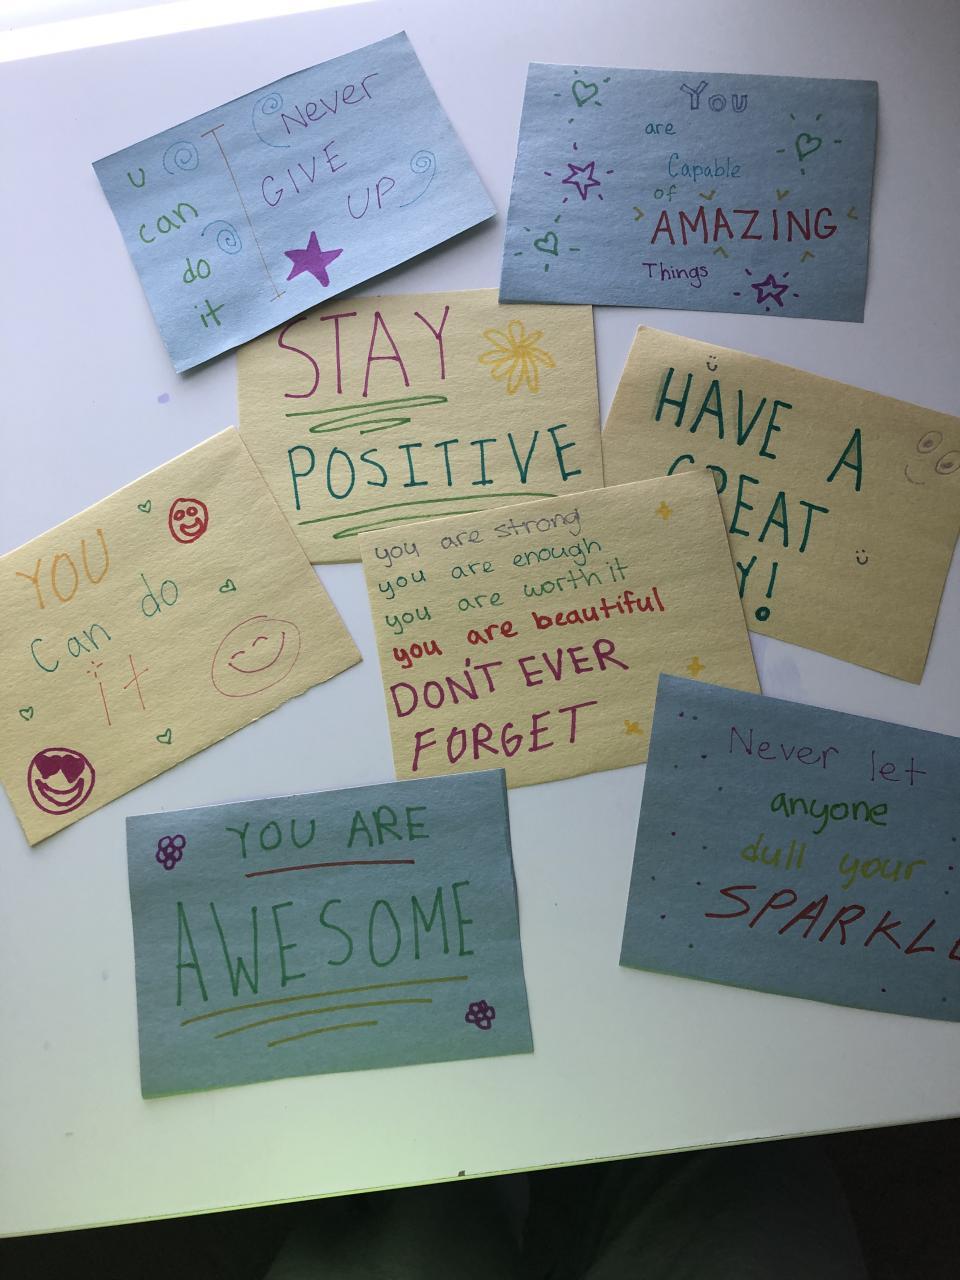 u
can
do
it
Never
GIVE
UP
You
are
Capable
of
AMAZING
Things
STAY
POSITIVE
HAVE A
GREAT
Y!
YOU
Can do
it
you are strong
you are enough
you are worth it
you are beautiful
DON'T EVER
FORGET
YOU ARE
AWESOME
Never let
anyone
dull your
SPARKLE